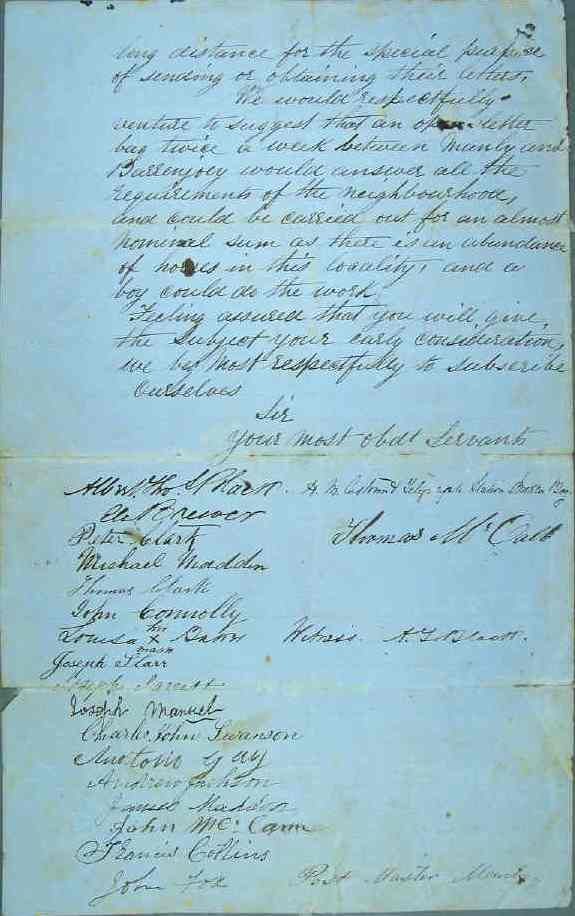 long distance for the special purpose
of sending or obtaining their letters.
We would respectfully
venture to suggest that an open letter
bag twice a week between Manly and
Barrenjoey would answer all the
requirements of the neighbourhood,
and could be carried out for an almost
nominal sum as there is an abundance
of horses in this locality, and a
boy could do the work.
Feeling assured that you will, give,
the subject your early consideration,
we beg most respectfully to subscribe
ourselves
Sir
Your most obdt Servants
Albert Tho. S Black. H. M. Customs & Telegraph Station Broken Bay
Peter Clark
Thomas McCabb
Michael Maddin
Thomas Clark
John Connolly
Louisa her x mark Witness. A. T. S. Black.
Joseph Starr
Joseph
Joseph Manuel
Charles John Swanson
Antonio Gay
Andrew Jackson
James
John McCann
Francis Collins
John Fox Post Master Manly